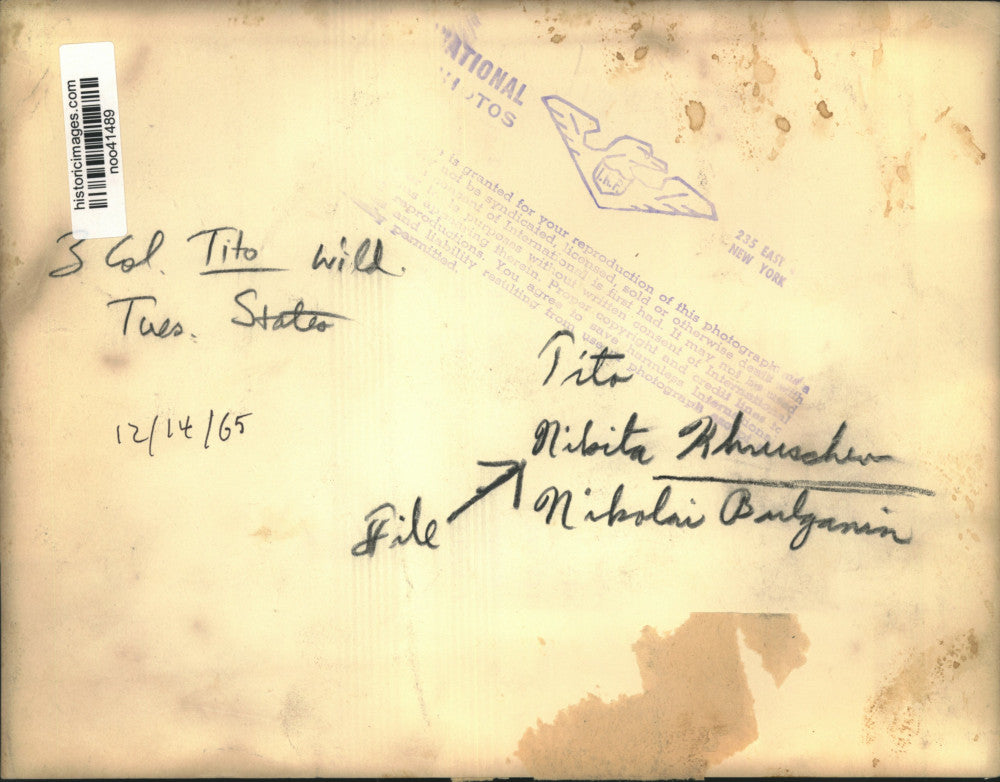 historicimages.com
noo41489
NATIONAL
235 EAST
NEW YORK
is granted for your reproduction of this photograph
not be syndicated, licensed, sold or otherwise
of International is first had. It may not be used
purposes without written consent of International
appearing therein. Proper copyright and credit lines
reproductions. You agree to save harmless
and liability resulting from use photograph
permitted.
3 Col. Tito Wild.
Tues. States
12/14/65
Tito
Nikita Khruschev
Nikolai Bulganin
File